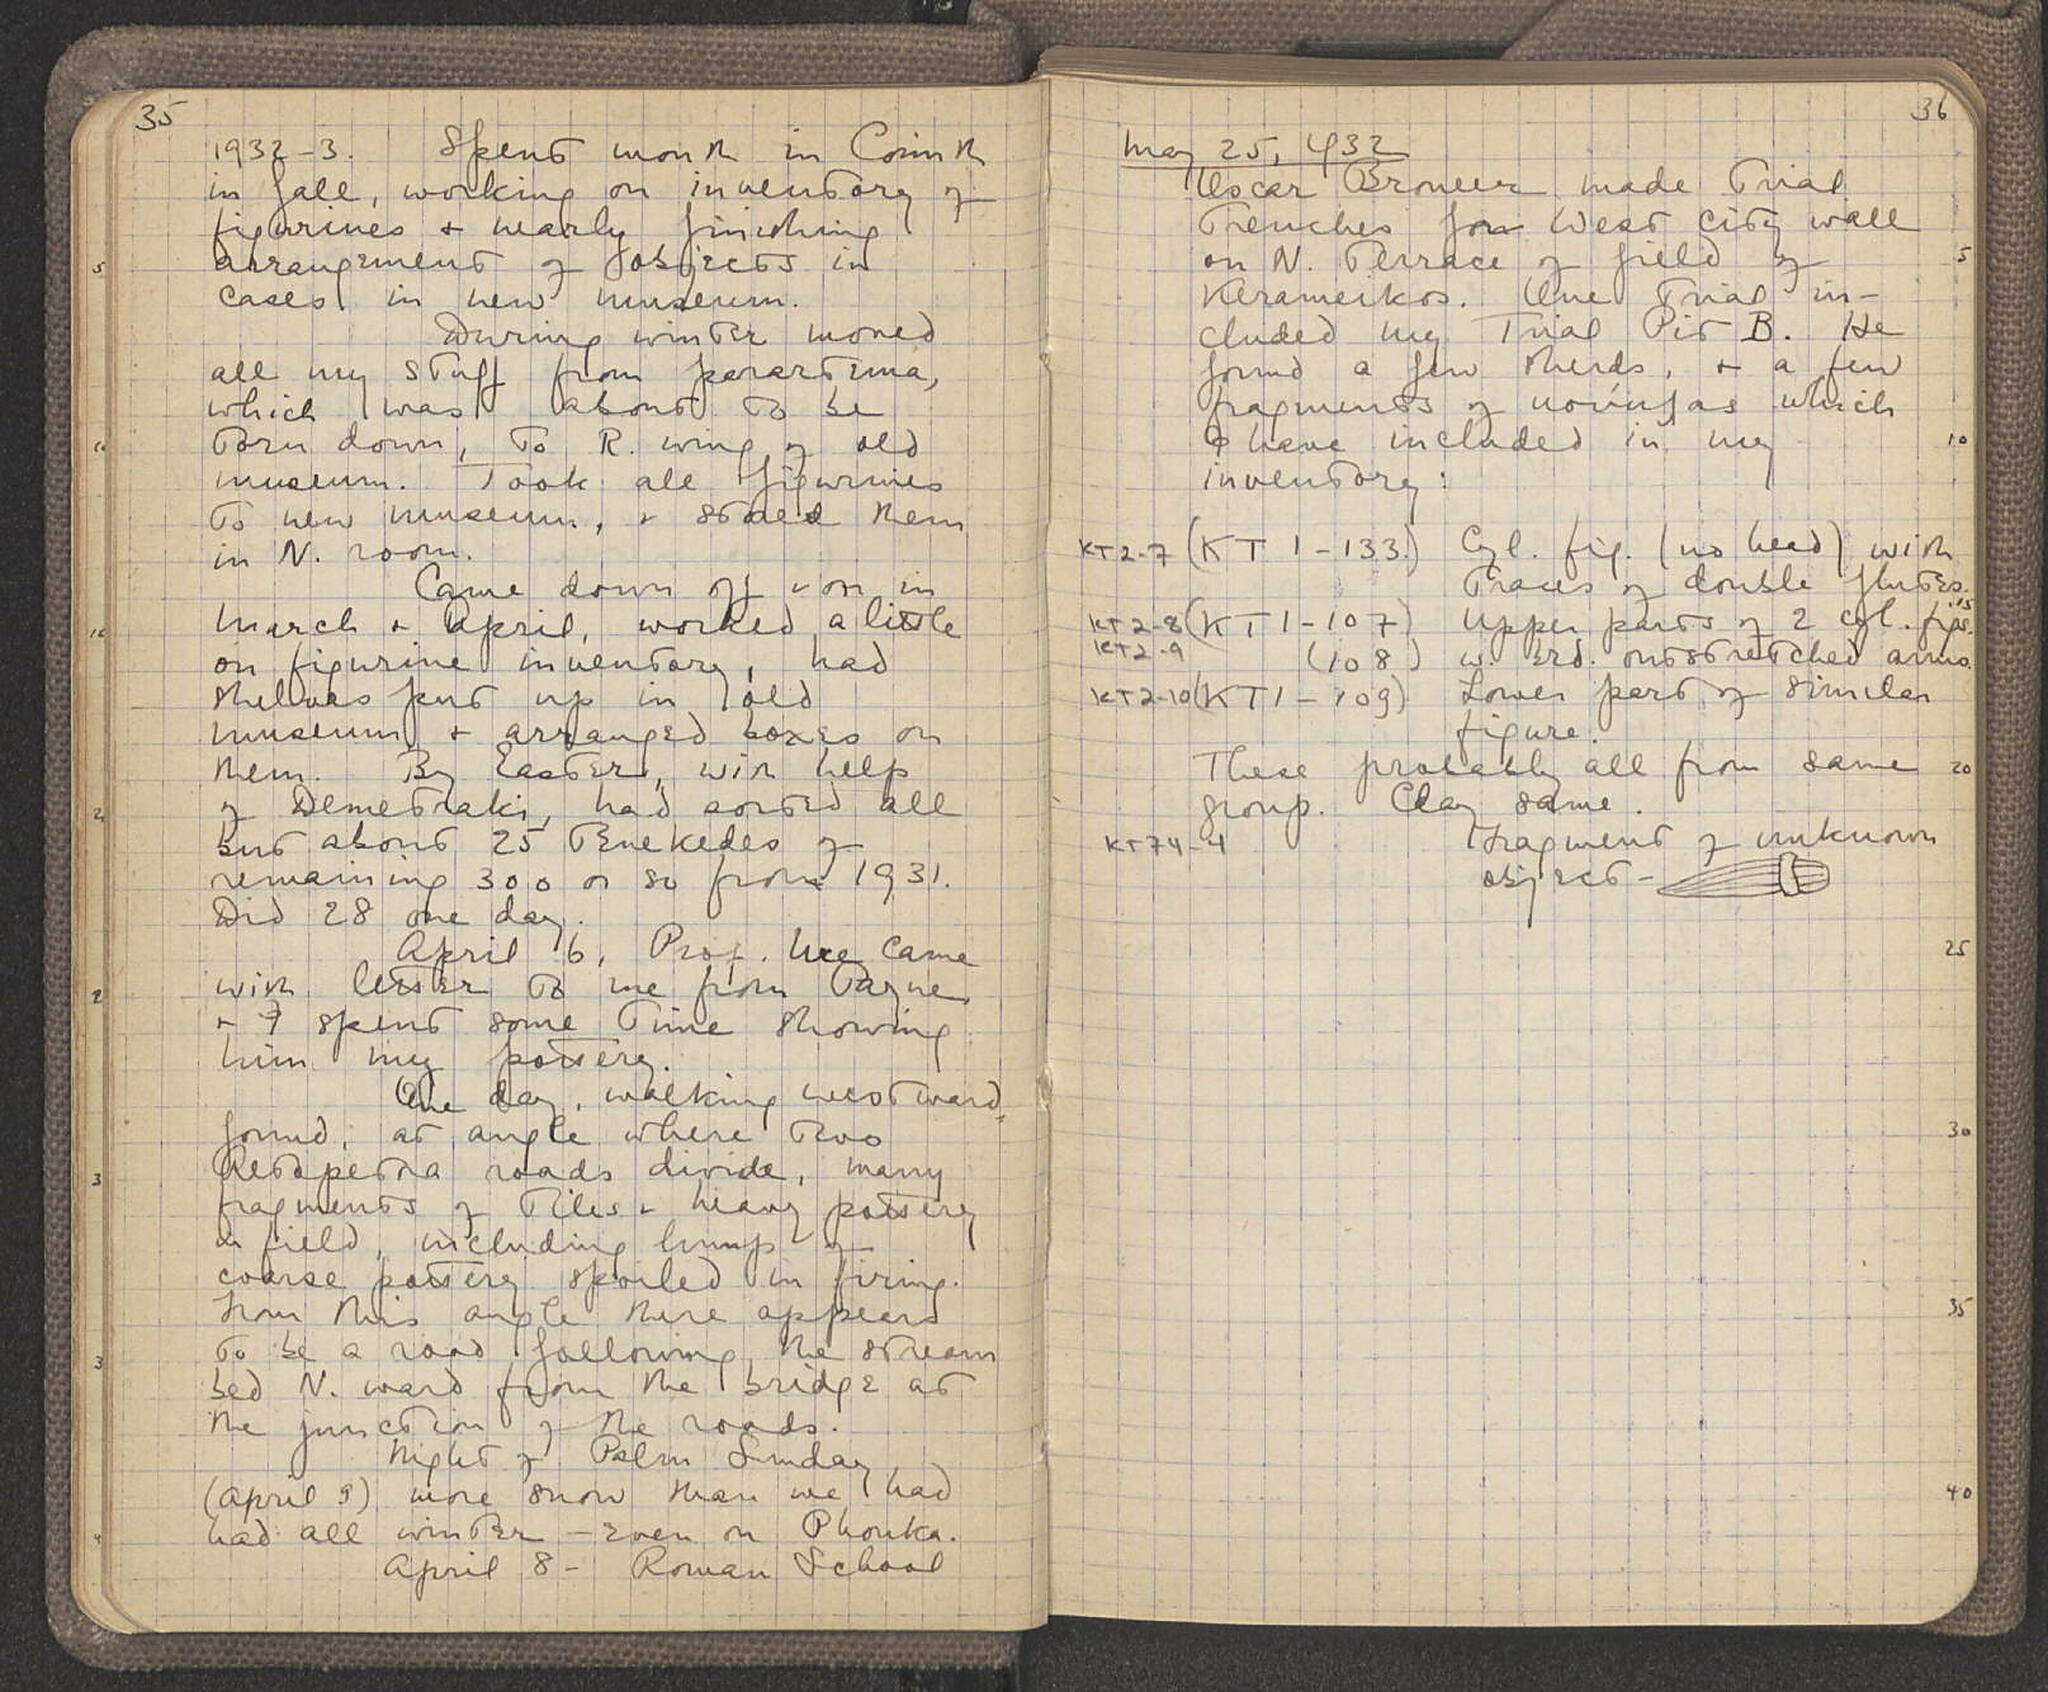 35
1932-3. Spent month in Corinth
in fall, working on inventory of
figurines + nearly finishing
5 arrangement of objects in
cases in new museum.
During winter moved
all my stuff from parartema,
which was about to be
10 torn down, to R. wing of old
museum. Took all figurines
to new museum, + stored them
in N. room.
Came down off + on in
March + April, worked a little
on figurine inventory, had
shelves put up in old
museum + arranged boxes on
them. By Easter, with help
of Demetraki, had sorted all
but about 25 tenekedes of
remaining 300 or so from 1931.
Did 28 one day.
April 6, Prof. Ure came
with letter to me from Payne,
+ I spent some time showing
him my pottery.
One day, walking westward,
found, at angle where two
Retopetra roads divide, many
fragments of tiles + heavy pottery
in field, including lump of
coarse pottery spoiled in firing.
From this angle there appears
to be a road following the stream
bed N. ward from the bridge at
the junction of the roads.
Night of Palm Sunday
(April 9) more snow than we had
had all winter - even on Phouka.
April 8 - Roman School
36
May 25, 1932
Oscar Broneer made trial
trenches for West city wall
on N. Terrace of field of 5
Kerameikos. One trial in-
cluded my Trial Pit B. He
found a few sherds, + a few
fragments of which
I have included in my 10
inventory:
KT2-7 (KT 1-133.) Cyl. fig. (no head) with
traces of double flutes.
KT2-8 (KT1-107) Upper parts of 2 cyl. figs. 15
KT2-9 (108) w. outstretched arms.
KT2-10 (KT1-109) Lower part of similar
figure.
These probably all from same 20
group. Clay same.
KT74-4 Fragment of unknown
object -
25
30
35
40